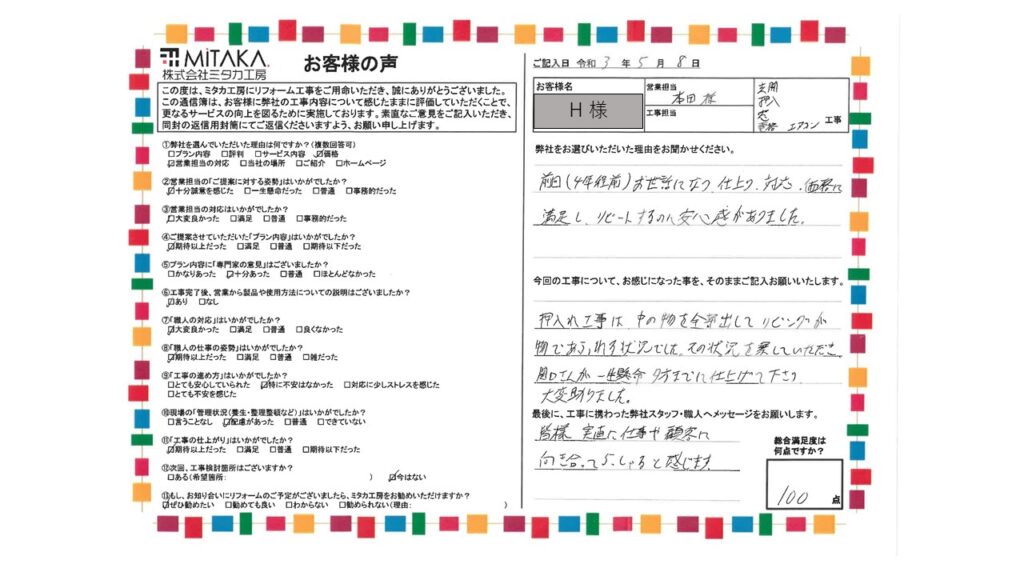 MiTAKA.
株式会社ミタカ工房
お客様の声
この度は、ミタカ工房にリフォーム工事をご用命いただき、誠にありがとうございました。
この通信簿は、お客様に弊社の工事内容について感じたままに評価していただくことで、
更なるサービスの向上を図るために実施しております。素直なご意見をご記入いただき、
同封の返信用封筒にてご返信くださいますよう、お願い申し上げます。
①弊社を選んでいただいた理由は何ですか?(複数回答可)
□プラン内容 □評判 □サービス内容 ☑価格
☑営業担当の対応 □当社の場所 □ご紹介 □ホームページ
②営業担当の「ご提案に対する姿勢」はいかがでしたか?
☑十分誠意を感じた □一生懸命だった □普通 □事務的だった
③営業担当の対応はいかがでしたか?
☑大変良かった □満足 □普通 □事務的だった
④ご提案させていただいた「プラン内容」はいかがでしたか?
☑期待以上だった □満足 □普通 □期待以下だった
⑤プラン内容に「専門家の意見」はございましたか?
□かなりあった ☑十分あった □普通 □ほとんどなかった
⑥工事完了後、営業から製品や使用方法についての説明はございましたか?
☑あり □なし
⑦「職人の対応」はいかがでしたか?
☑大変良かった □満足 □普通 □良くなかった
⑧「職人の仕事の姿勢」はいかがでしたか?
☑期待以上だった □満足 □普通 □雑だった
⑨「工事の進め方」はいかがでしたか?
□とても安心していられた ☑特に不安はなかった □対応に少しストレスを感じた
□とても不安を感じた
⑩現場の「管理状況(養生・整理整頓など)」はいかがでしたか?
□言うことなし ☑配慮があった □普通 □できていない
⑪「工事の仕上がり」はいかがでしたか?
☑期待以上だった □満足 □普通 □期待以下だった
⑫次回、工事検討箇所はございますか?
□ある(希望箇所: ) ☑今はない
⑬もし、お知り合いにリフォームのご予定がございましたら、ミタカ工房をお勧めいただけますか?
☑ぜひ勧めたい □勧めても良い □わからない □勧められない(理由: )
ご記入日 令和 3 年 5 月 8 日
お客様名
H 様
営業担当
本田 様
工事担当
玄関
押入
窓
エアコン 工事
弊社をお選びいただいた理由をお聞かせください。
前回(4年程前)お世話になり 仕上り、対応、価格に
満足し、リピートするのに安心感がありました。
今回の工事について、お感じになった事を、そのままご記入お願いいたします。
押入れ工事は 中の物を全部出して リビングが
物であふれる状況でした。その状況を察していただき、
関口さんが 一生懸命 夕方までに仕上げて下さり
大変助りました。
最後に、工事に携わった弊社スタッフ・職人へメッセージをお願いします。
皆様 実直に仕事や顧客に
向き合っていらっしゃると感じます。
総合満足度は
何点ですか?
100 点